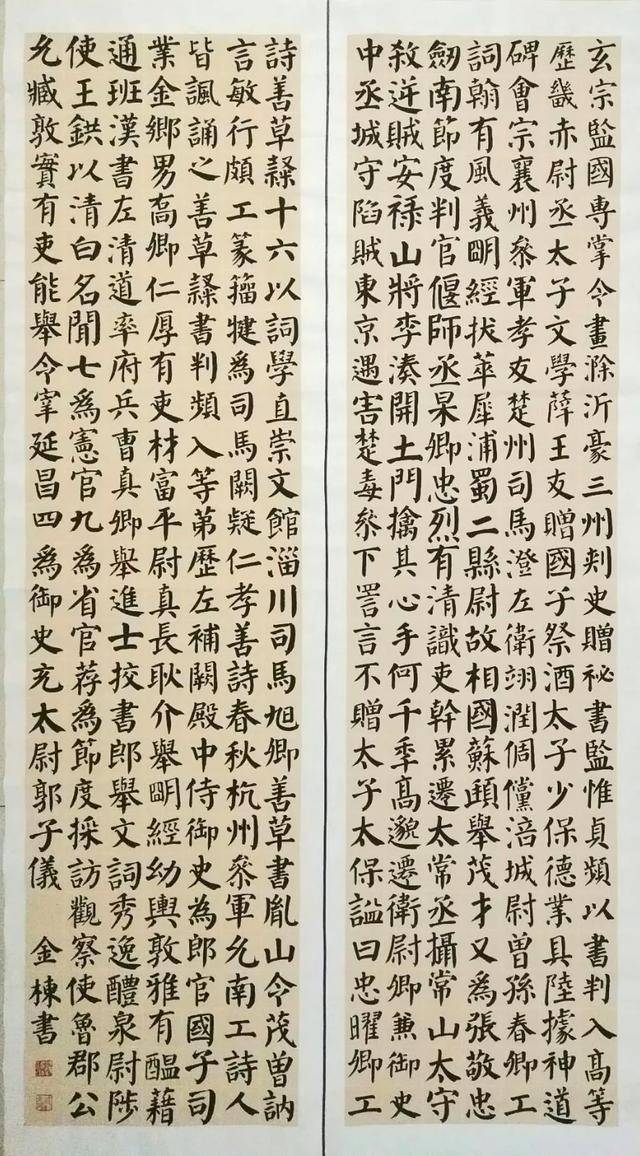 玄宗監國專掌令畫滁沂豪三州刾史贈祕書監惟貞頻以書判入高等
歷畿赤尉丞太子文學薛王友贈國子祭酒太子少保德業具陸據神道
碑會宗襄州叅軍孝友楚州司馬澄左衛翊潤倜儻涪城尉曽孫春卿工
詞翰有風義眀經拔萃犀浦蜀二縣尉故相國蘇頲舉茂才又為張敬忠
劒南節度判官偃師丞杲卿忠烈有清識吏幹累遷太常丞攝常山太守
殺逆賊安祿山將李湊開土門擒其心手何千秊高邈遷衛尉卿兼御史
中丞城守陷賊東京遇害楚毒叅下詈言不贈太子太保謚曰忠曜卿工
詩善草隸十六以詞學直崇文館淄川司馬旭卿善草書胤山令茂曽訥
言敏行頗工篆籀犍為司馬闕疑仁孝善詩春秋杭州叅軍允南工詩人
皆諷誦之善草隸書判頻入等第歷左補闕殿中侍御史為郎官國子司
業金鄉男喬卿仁厚有吏材富平尉真長耿介舉眀經幼輿敦雅有醞藉
通班漢書左清道率府兵曹真卿舉進士挍書郎舉文詞秀逸醴泉尉陟
使王鉷以清白名聞七為憲官九為省官荐為節度採訪觀察使魯郡公
允臧敦實有吏能舉令宰延昌四為御史充太尉郭子儀 金棟書